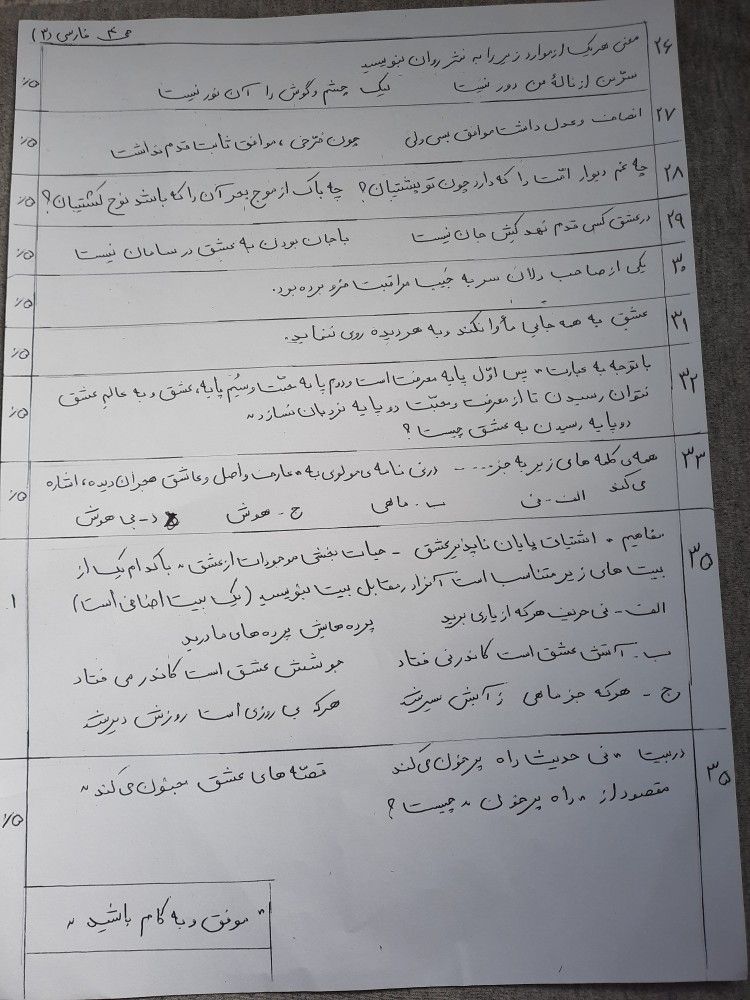 ص ۴ فارسی (۲)
۲۶ معنی هر یک از موارد زیر را به نثر روان بنویسید
سرّ من از نالهٔ من دور نیست لیک چشم و گوش را آن نور نیست ۰/۵
۲۷ انصاف و عدل داشت موافق بسی ولی چون فرّخی، موافق ثابت قدم نداشت ۰/۵
۲۸ چه غم دیوار امّت را که دارد چون تو پشتیبان؟ چه باک از موج بحر آن را که باشد نوح کشتیبان؟ ۰/۵
۲۹ در عشق کسی قدم نهد کِش جان نیست با جان بودن به عشق در سامان نیست ۰/۵
۳۰ یکی از صاحب دلان سر به جَیب مراقبت فرو برده بود. ۰/۵
۳۱ عشق به همه جایی مأوا نکند و به هر دیده روی ننماید. ۰/۵
۳۲ با توجه به عبارت " پس اوّل پایه معرفت است و دوم پایه محبّت و سیُّم پایه، عشق و به عالم عشق
نتوان رسیدن تا از معرفت و محبّت دو پایه نردبان نسازد "
دو پایه رسیدن به عشق چیست؟ ۰/۵
۳۳ همه ی کلمه های زیر به جز ..... در نی نامه ی مولوی به " عارف واصل و عاشق هجران دیده، اشاره
می کند ۰/۵
الف - نی ب - ماهی ج - هوش د - بی هوش
۳۵ مفاهیم " اشتیاق پایان ناپذیر عشق - حیات بخشی موجودات از عشق " با کدام یک از
بیت های زیر متناسب است آنرا در مقابل بیت بنویسید (یک بیت اضافی است) ۱
الف - نی حریف هرکه از یاری برید پرده هایش پرده های ما درید
ب - آتش عشق است کاندر نی فتاد جوشش عشق است کاندر می فتاد
ج - هرکه جز ماهی ز آبش سیر شد هرکه بی روزی است روزش دیر شد
۳۵ در بیت " نی حدیث راه پر خون می کند قصّه های عشق مجنون می کند "
مقصود از " راه پر خون " چیست؟ ۰/۵
" موفق و به کام باشید "